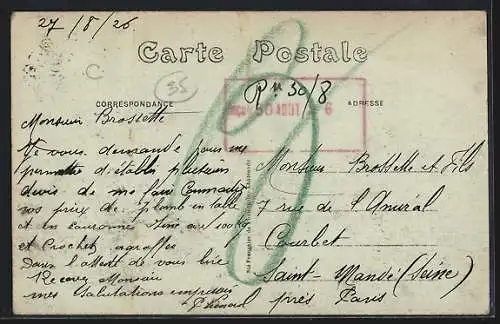 27/8/26
Carte Postale
C
35
Rⁿ 30/8
CORRESPONDANCE
ADRESSE
30 AOUT 6
Monsieur Brossette
Je vous demande pour me
permettre d'établir plusieurs
devis de me faire
vos prix de Plomb en table
et en couronnes Zinc
et Crochets agraffes
Dans l'attente de vous lire
Recevez Monsieur
mes Salutations
Monsieur Brossette et Fils
7 rue de l'Amiral
Courbet
Saint-Mandé (Seine)
près Paris